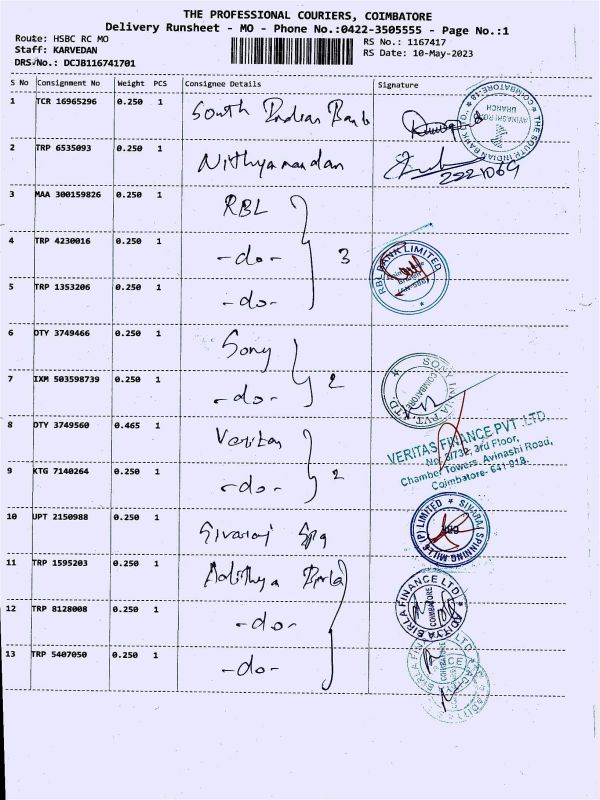 THE PROFESSIONAL COURIERS, COIMBATORE
Delivery Runsheet - MO - Phone No.:0422-3505555 - Page No.:1
Route: HSBC RC MO
RS No.: 1167417
Staff: KARVEDAN
RS Date: 10-May-2023
DRS No.: DCJB116741701
S No Consignment No Weight PCS Consignee Details Signature
1 TCR 16965296 0.250 1 South Indian Bank
THE SOUTH INDIAN BANK COIMBATORE-18 AVINASHI ROAD BRANCH
2 TRP 6535093 0.250 1 Nithyanandan
3 MAA 300159826 0.250 1 RBL
4 TRP 4230016 0.250 1 -do- 3
RBL BANK LIMITED
5 TRP 1353206 0.250 1 -do-
6 DTY 3749466 0.250 1 Sony
7 IXM 503598739 0.250 1 -do- 2
SONY INDIA PVT. LTD. COIMBATORE
8 DTY 3749560 0.465 1 Veritas
VERITAS FINANCE PVT. LTD.
No. 8/732, 3rd Floor,
Chamber Towers, Avinashi Road,
Coimbatore- 641 018.
9 KTG 7140264 0.250 1 -do- 2
10 UPT 2150988 0.250 1 Sivaraj Spg
SIVARAJ SPINNING MILLS (P) LIMITED
11 TRP 1595203 0.250 1 Adithya Birla
12 TRP 8128008 0.250 1 -do-
ADITYA BIRLA FINANCE LTD COIMBATORE
13 TRP 5407050 0.250 1 -do-